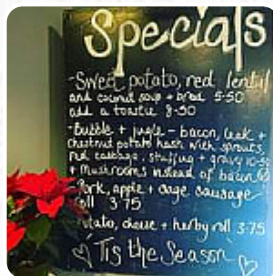 Specials
-Sweet potato, red lentil
and coconut soup + bread 5-50
add a toastie 8-50
-Bubble + jugle - bacon, leek +
chestnut potato hash with sprouts,
red cabbage, stuffing + gravy 10-5
+ Mushrooms instead of bacon
-Pork, apple + sage sausage
roll 3.75
-Potato, cheese + herby roll 3.75
'Tis the Season